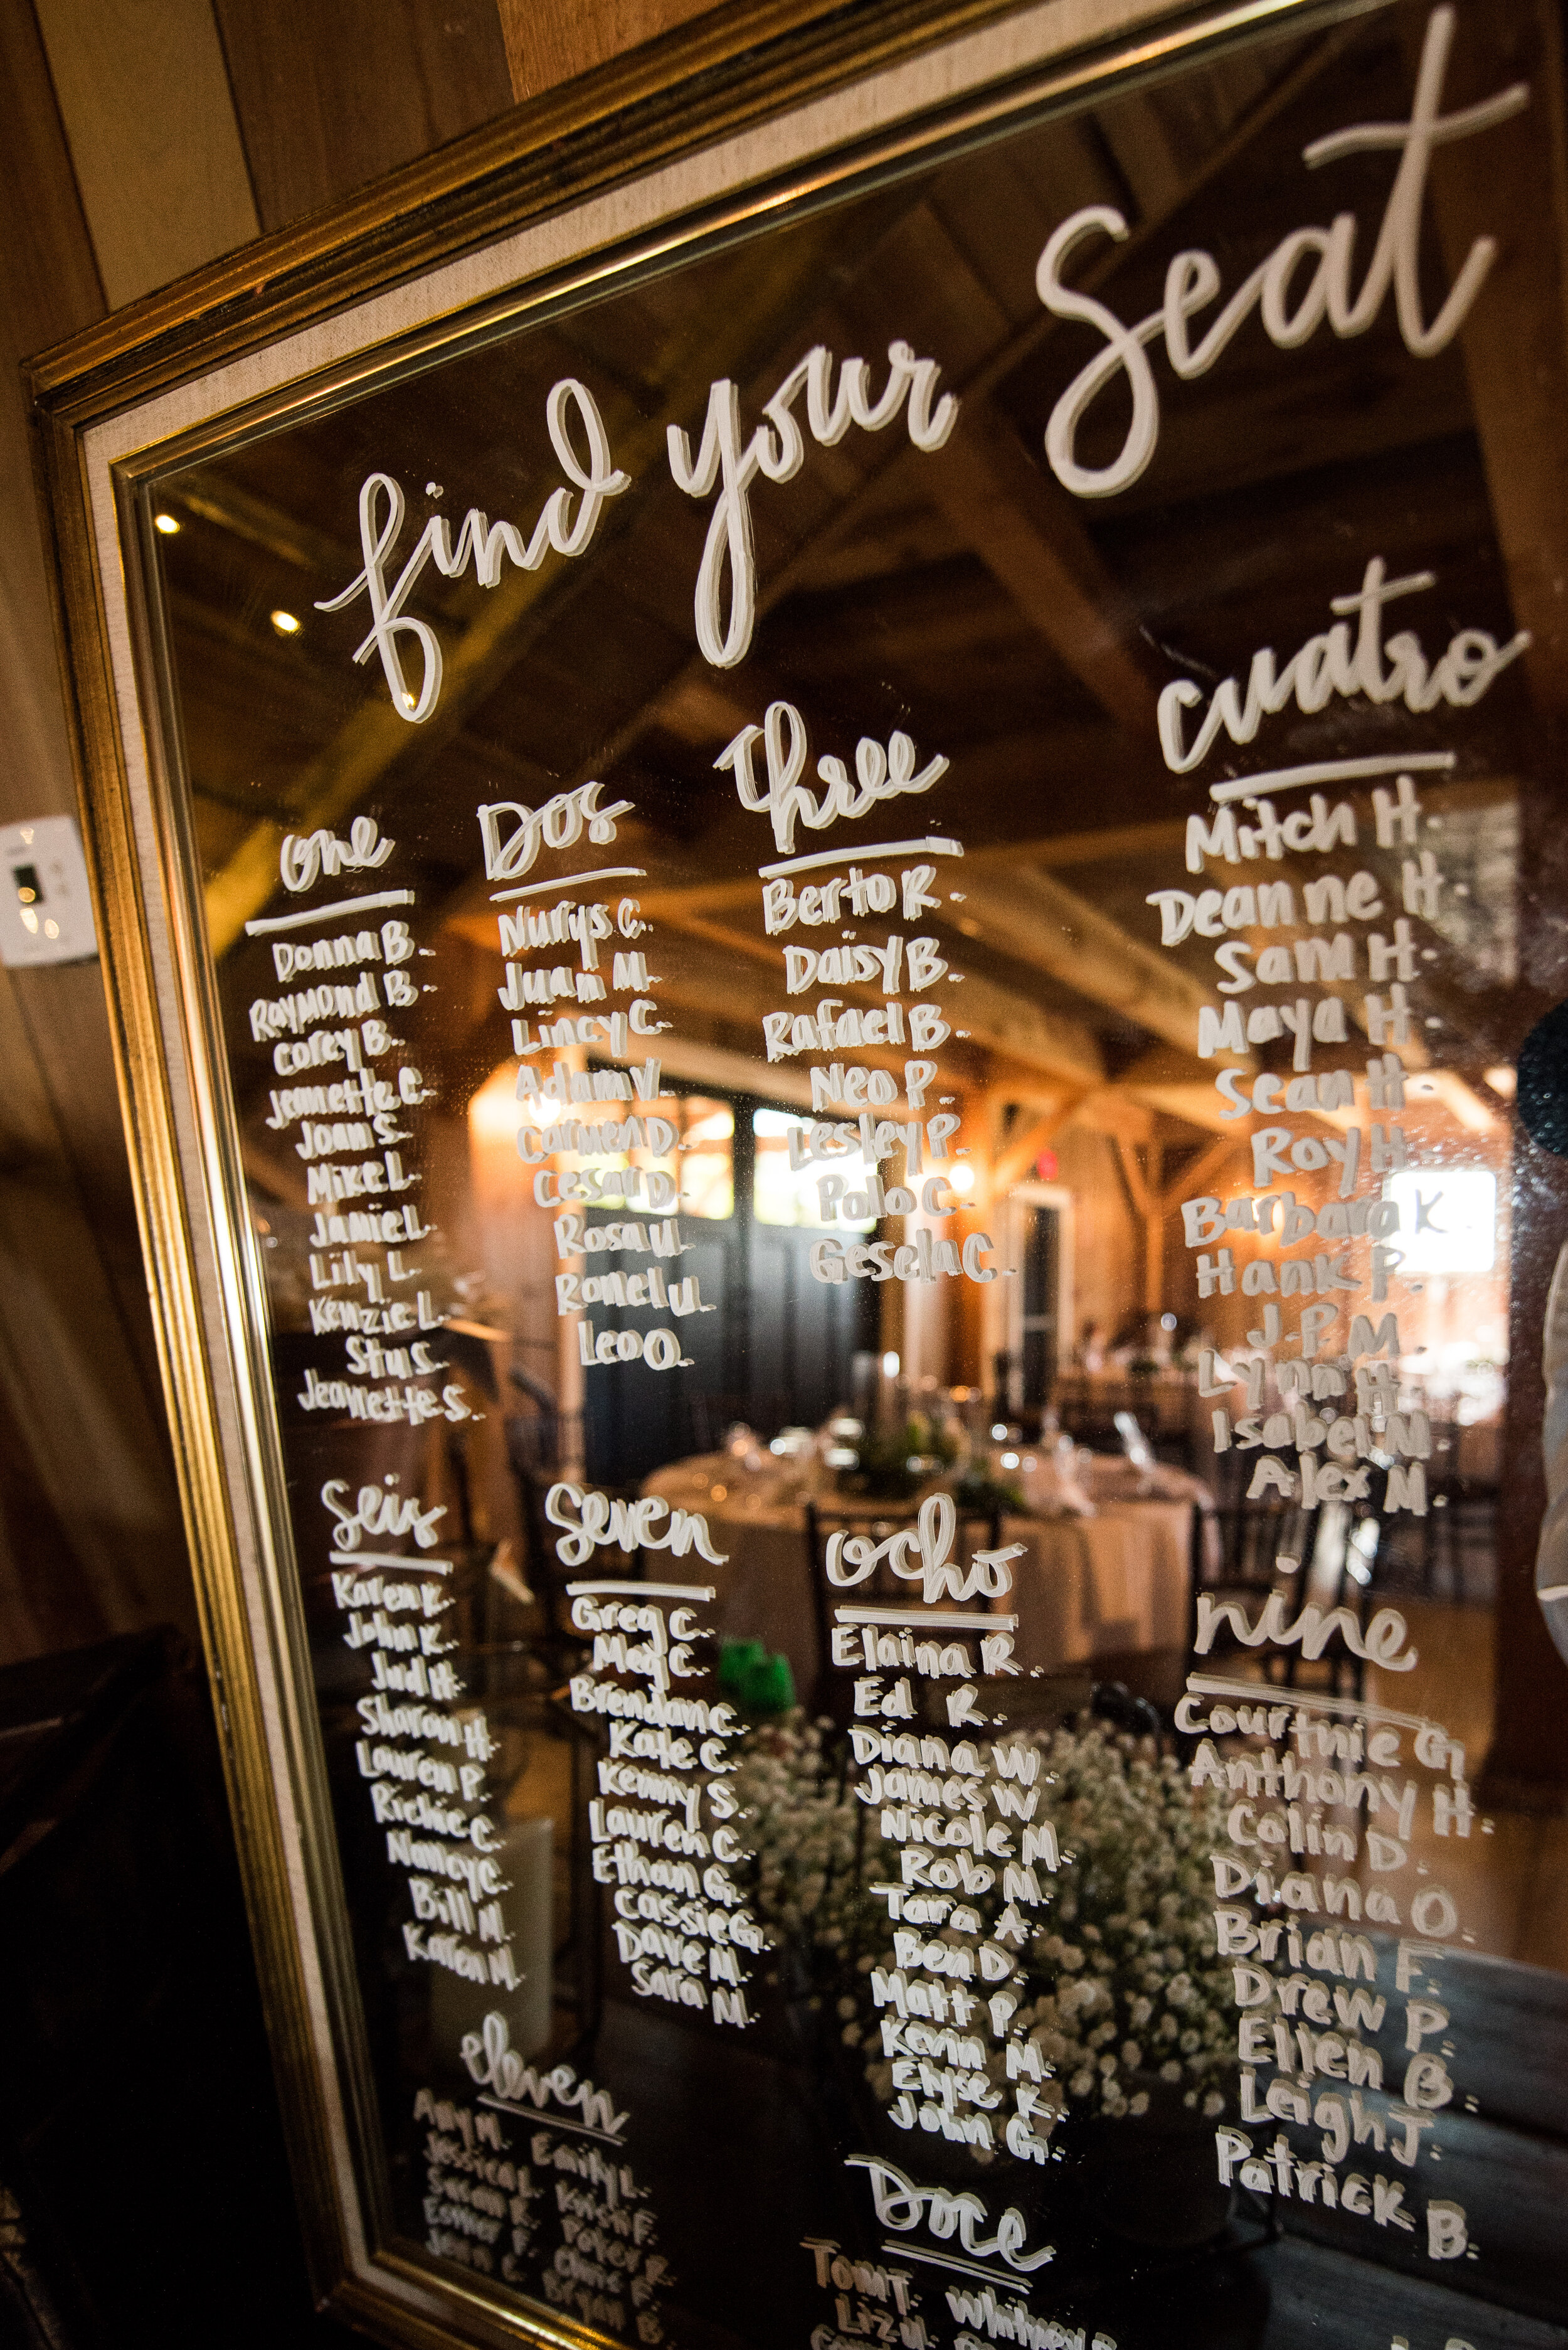 find your seat
one
Donna B.
Raymond B.
Corey B.
Jeanette C.
Joan S.
Mike L.
Jamie L.
Lily L.
Kenzie L.
Stu S.
Jeanette S.
Dos
Nurys C.
Juan M.
Lincy C.
Adam V.
Carmen D.
Cesar D.
Rosa U.
Ronel U.
Leo O.
three
Berto R.
Daisy B.
Rafael B.
Neo P.
Lesley P.
Polo C.
Gesela C.
cuatro
Mitch H.
Deanne H.
Sam H.
Maya H.
Sean H.
Roy H.
Barbara K.
Hank P.
J.P. M.
Lynn H.
Isabel M.
Alex M.
seis
Karen K.
John K.
Jud H.
Sharon H.
Lauren P.
Richie C.
Nancy C.
Bill M.
Karen M.
seven
Greg C.
Meg C.
Brendan C.
Kate C.
Kenny S.
Lauren C.
Ethan G.
Cassie G.
Dave M.
Sara M.
ocho
Elaina R.
Ed R.
Diana W.
James W.
Nicole M.
Rob M.
Tara A.
Ben D.
Matt P.
Kevin M.
Elyse K.
John G.
nine
Courtnie G.
Anthony H.
Colin D.
Diana O.
Brian F.
Drew P.
Ellen B.
Leigh J.
Patrick B.
eleven
Amy M. Emily L.
Jessica L. Kristi F.
Susan R.
Chris F.
Bryan B.
Doce
Tom T. Whitney
Liz U.